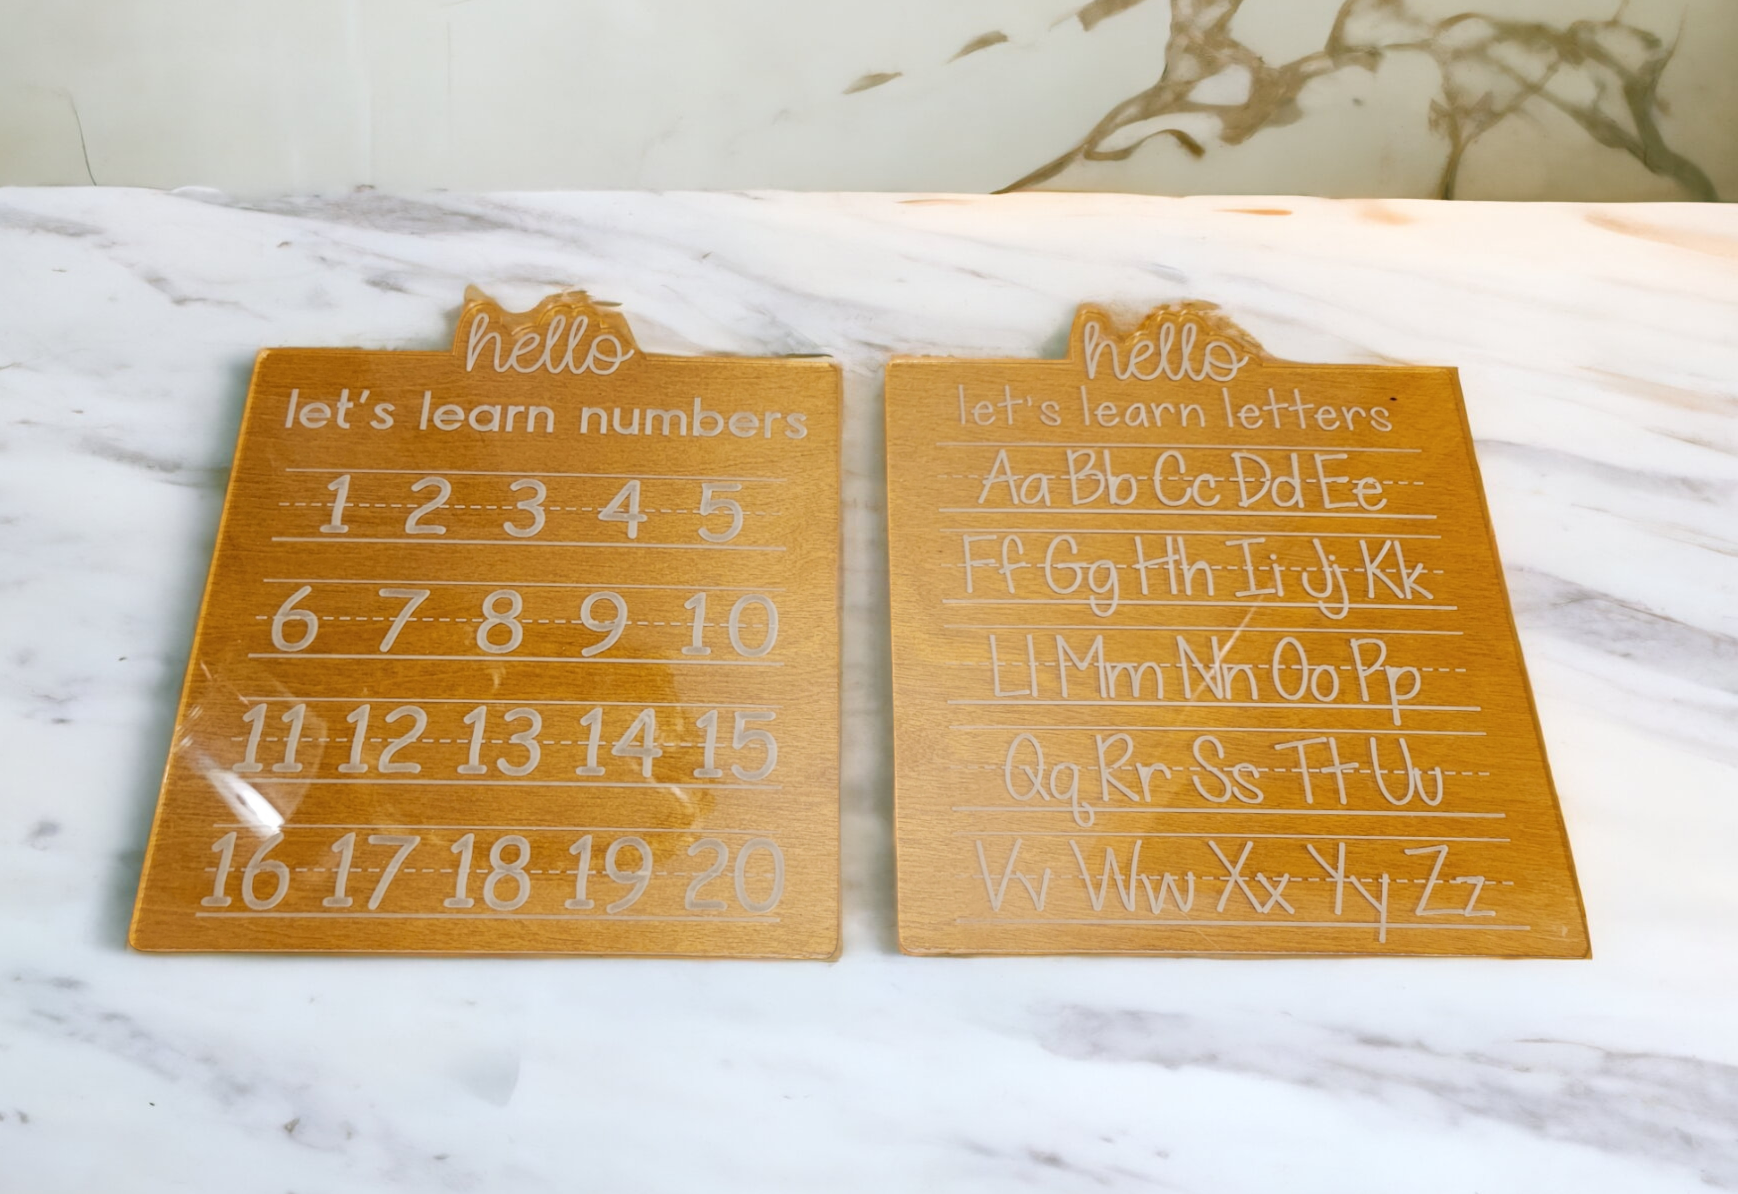 hello
let's learn numbers
1 2 3 4 5
6 7 8 9 10
11 12 13 14 15
16 17 18 19 20
hello
let's learn letters
Aa Bb Cc Dd Ee
Ff Gg Hh Ii Jj Kk
Ll Mm Nn Oo Pp
Qq Rr Ss Tt Uu
Vv Ww Xx Yy Zz